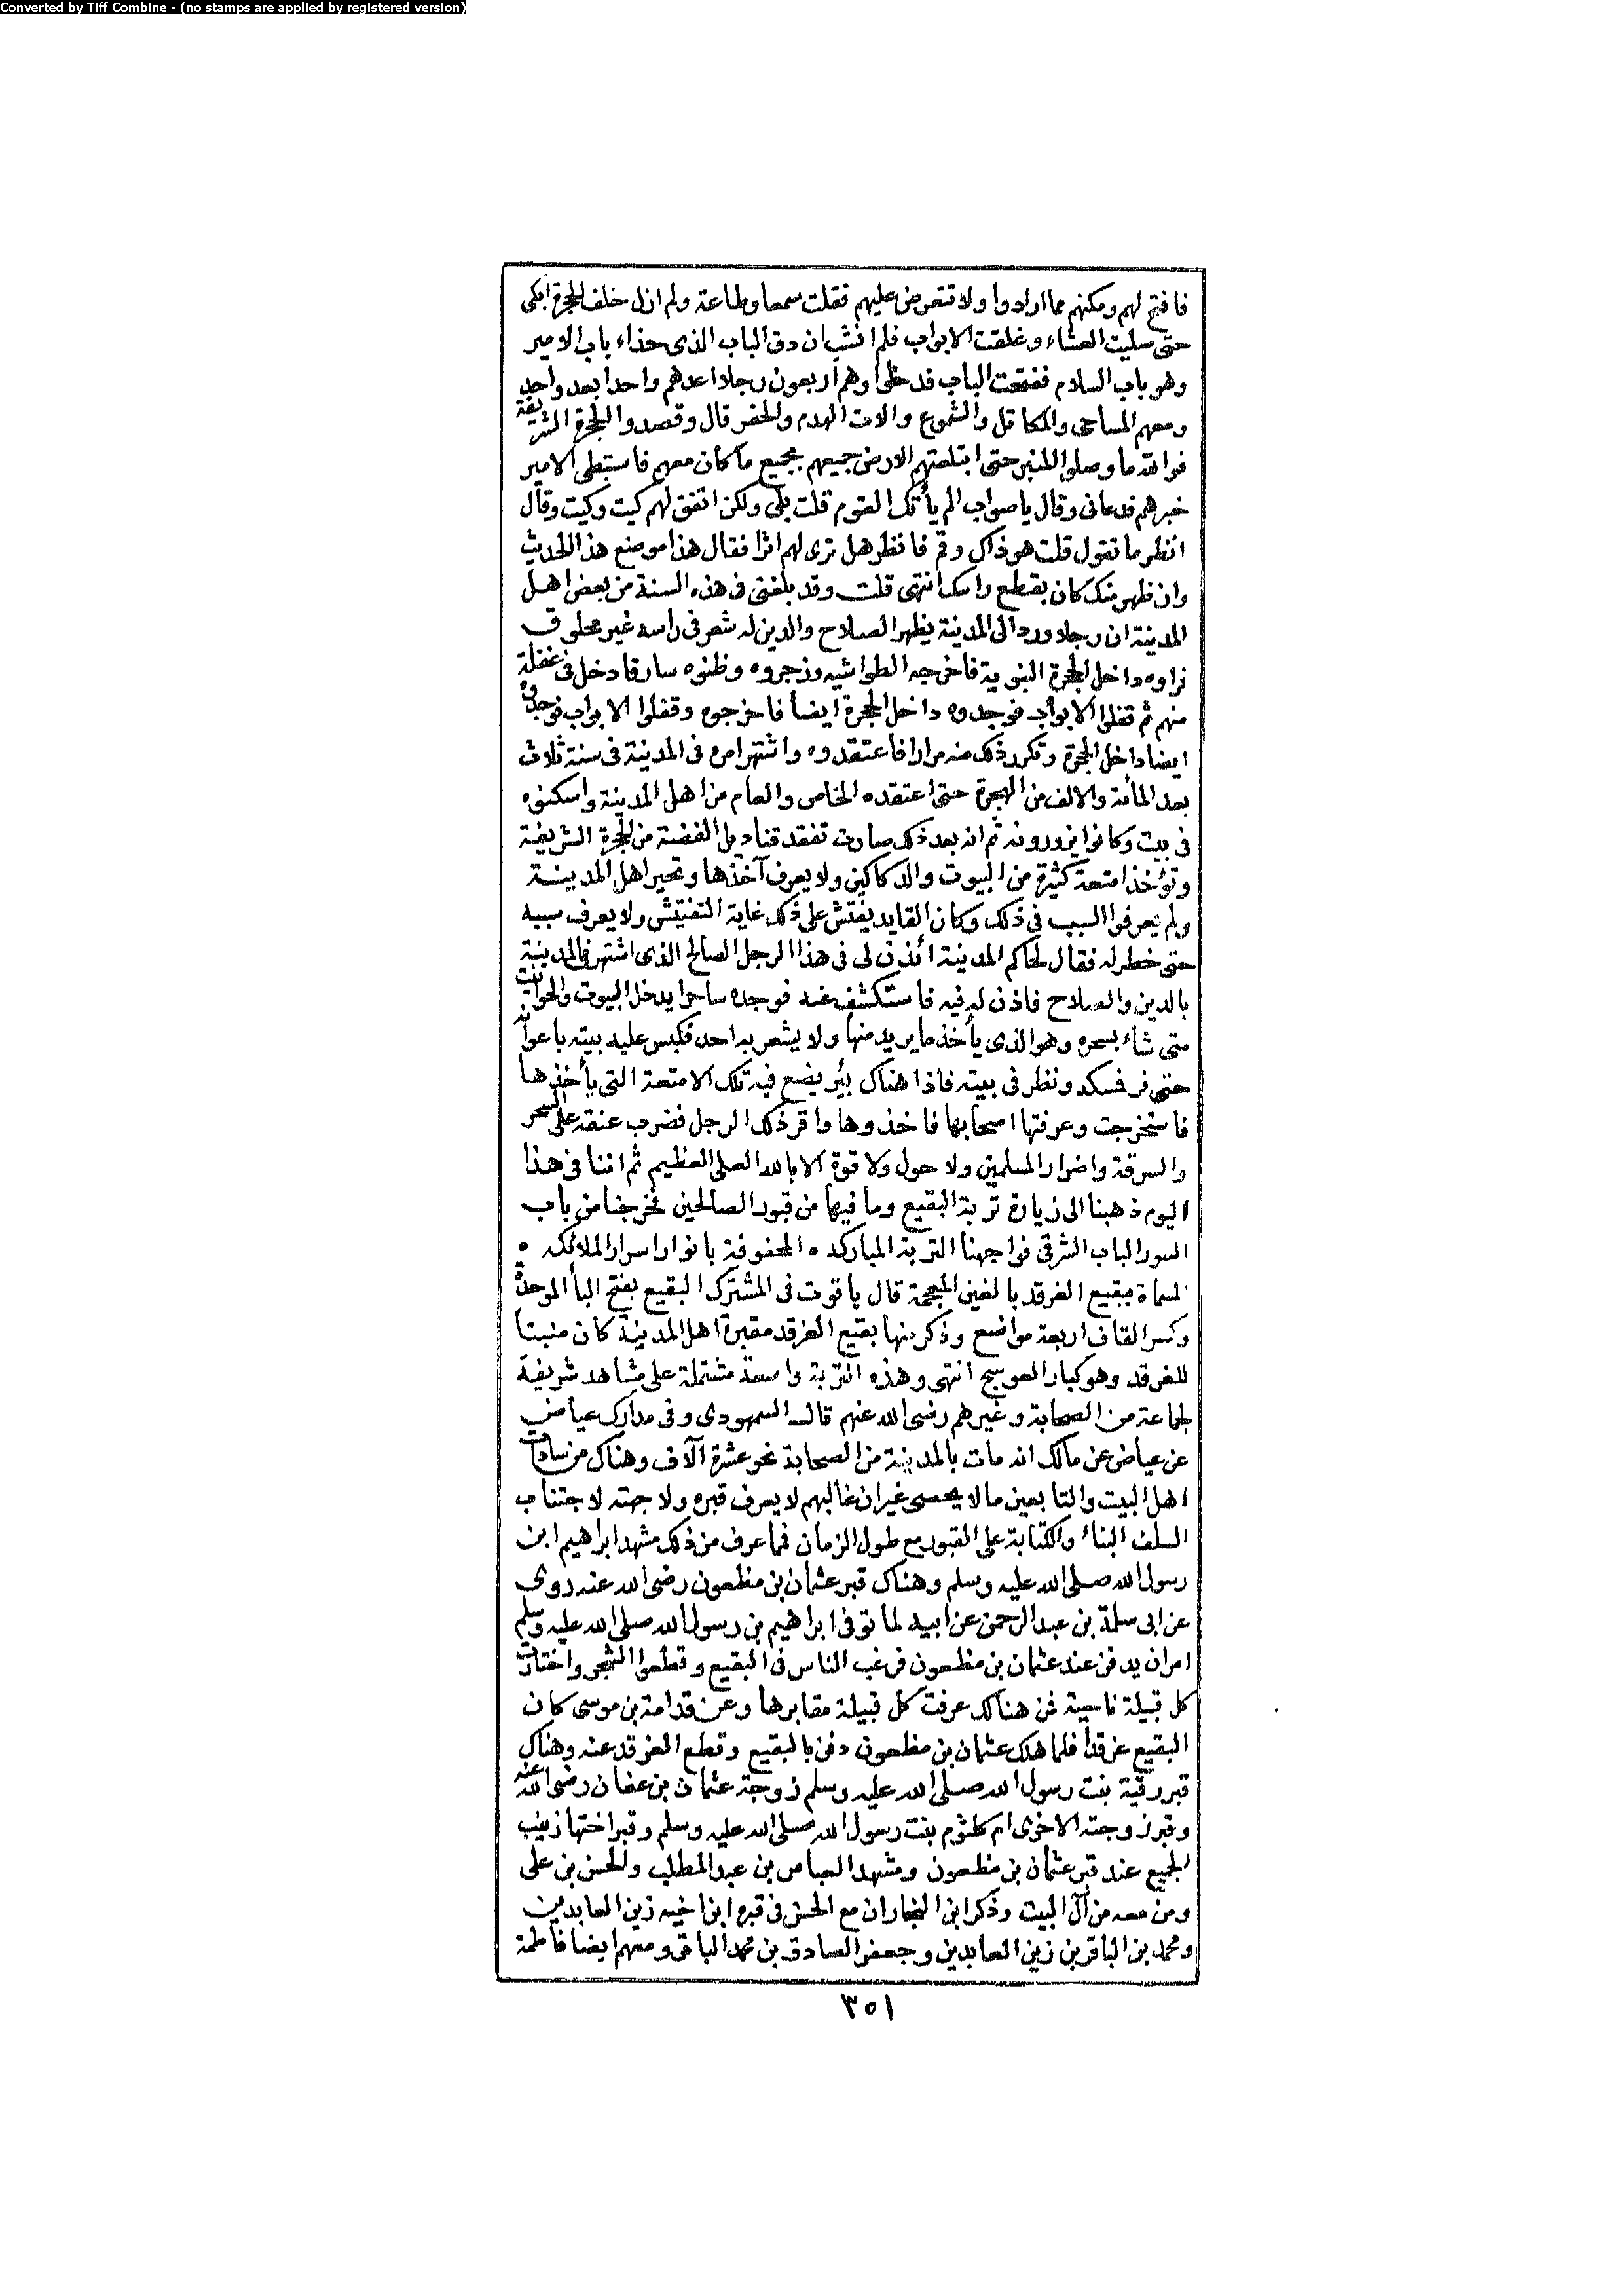 Converted by Tiff Combine - (no stamps are applied by registered version)
فافتح لهم ومكنهم مما ارادوا ولا تتعرض عليهم فقلت سمعا وطاعة ولم ازل خلف الحجرة ابكى
حتى صليت العشاء وغلقت الابواب فلم انشب ان دق الباب الذى حذاء باب الامير
وهو باب السلام ففتحت الباب فدخلوا وهم اربعون رجلا اعدهم واحدا بعد واحد
ومعهم المساحى والمكاتل والشموع والات الهدم والحفر قال وقصدوا الحجرة الشريفة
فوالله ما وصلوا المنبر حتى ابتلعتهم الارض جميعهم بجميع ما كان معهم فاستبطى الامير
خبرهم فدعانى وقال يا صواب الم يأتك القوم قلت بلى ولكن اتفق لهم كيت وكيت وقال
انظر ما تقول قلت هو ذاك وقم فانظر هل ترى لهم اثرا فقال هذا موضع هذا الحديث
وان ظهر منك كان بقطع راسك انتهى قلت وقد بلغنى فى هذه السنة من بعض اهل
المدينة ان رجلا ورد الى المدينة يظهر الصلاح والدين له شعر فى راسه غير محلوق
فراوه داخل الحجرة النبوية فاخرجه الطواشيه وزجروه وظنوه سارقا دخل فى غفلة
منهم ثم قفلوا الابواب فوجدوه داخل الحجرة ايضا فاخرجوه وقفلوا الابواب فوجدوه
ايضا داخل الحجرة وتكرر ذلك منه مرارا فاعتقدوه واشتهر امره فى المدينة فى سنة ثلاث
بعد المأئة والالف من الهجرة حتى اعتقده الخاص والعام من اهل المدينة واسكنوه
فى بيت وكانوا يزورونه ثم انه بعد ذلك صارت تفقد قناديل الفضة من الحجرة الشريفة
وتؤخذ امتعة كثيرة من البيوت والدكاكين ولا يعرف آخذها وتحير اهل المدينة
ولم يعرفوا السبب فى ذلك وكان القايد يفتش على ذلك غاية التفتيش ولا يعرف سببه
حتى خطر له فقال لحاكم المدينة أئذن لى فى هذا الرجل الصالح الذى اشتهر فى المدينة
بالدين والصلاح فاذن له فيه فاستكشف عنه فوجده ساحرا يدخل البيوت والحوانيت
متى شاء بسحره وهو الذى يأخذ ما يريد منها ولا يشعر به احد فكبس عليه بيته باعوانه
حتى فر فمسكه ونظر فى بيته فاذا هناك بئر يضع فيه تلك الامتعة التى يأخذها
فاستخرجت وعرفتها اصحابها فاخذوها واقر ذلك الرجل فضرب عنقه على السحر
والسرقة واضرار المسلمين ولا حول ولا قوة الا بالله العلى العظيم ثم اننا فى هذا
اليوم ذهبنا الى زيارة تربة البقيع وما فيها من قبور الصالحين فخرجنا من باب
السور الباب الشرقى فواجهنا التربة المباركه ٠ المحفوفة بانوار اسرار الملائكه ٠
المسماة ببقيع الغرقد بالغين المعجمة قال ياقوت فى المشترك البقيع بفتح البأ الموحدة
وكسر القاف اربعة مواضع وذكر منها بقيع الغرقد مقبرة اهل المدينة كان منبتا
للغرقد وهو كبار العوسج انتهى وهذه التربة واسعة مشتملة على مشاهد شريفة
لجماعة من الصحابة وغيرهم رضى الله عنهم قال السمهودى وفى مدارك عياض
عن عياض عن مالك انه مات بالمدينة من الصحابة نحو عشرة آلاف وهناك من سادات
اهل البيت والتابعين ما لا يحصى غير ان غالبهم لا يعرف قبره ولا جهته لاجتناب
السلف البناء والكتابة على القبور مع طول الزمان فما عرف من ذلك مشهد ابراهيم ابن
رسول الله صلى الله عليه وسلم وهناك قبر عثمان بن مظعون رضى الله عنه روى
عن ابى سلمة بن عبد الرحمن عن ابيه لما توفى ابراهيم بن رسول الله صلى الله عليه وسلم
امر ان يدفن عند عثمان بن مظعون فرغب الناس فى البقيع وقطعوا الشجر واختارت
كل قبيلة ناحية فمن هنالك عرفت كل قبيلة مقابرها وعن قدامة بن موسى كان
البقيع غرقدا فلما هلك عثمان بن مظعون دفن بالبقيع وقطع الغرقد عنه وهناك
قبر رقية بنت رسول الله صلى الله عليه وسلم زوجة عثمان بن عفان رضى الله عنه
وقبر زوجته الاخرى ام كلثوم بنت رسول الله صلى الله عليه وسلم وقبر اختها زينب
الجميع عند قبر عثمان بن مظعون ومشهد العباس بن عبد المطلب والحسن بن على
ومن معه من آل البيت وذكر ابن النجار ان مع الحسن فى قبره ابن اخيه زين العابدين
ومحمد بن الباقر بن زين العابدين وجعفر الصادق بن محمد الباقر ومعهم ايضا فاطمة
٣٥١